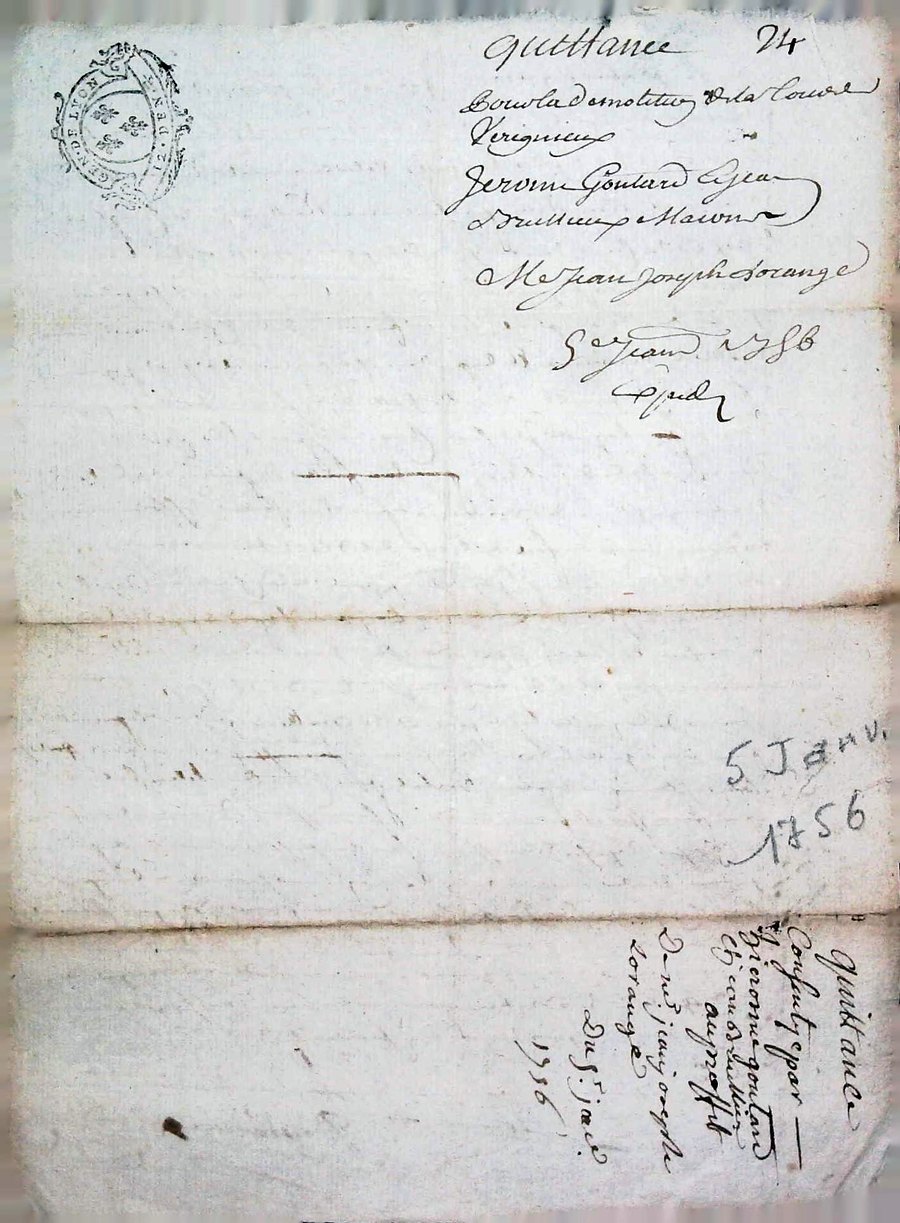 GEN. DE LYON
DEN. 12.
quittance 24
Pour la demolition de la Cour de
Verignieux
Jerome Goutard & Jean
Bruttieux Macons
Me Jean Joseph Dorange
5e Janv. 1756
Exped
5 Janv.
1756
quittance
Consentye par
hierome goutard
Et jean
au proffit
De me. jean josepthe
Lorange
Du 5e. janv.
1756